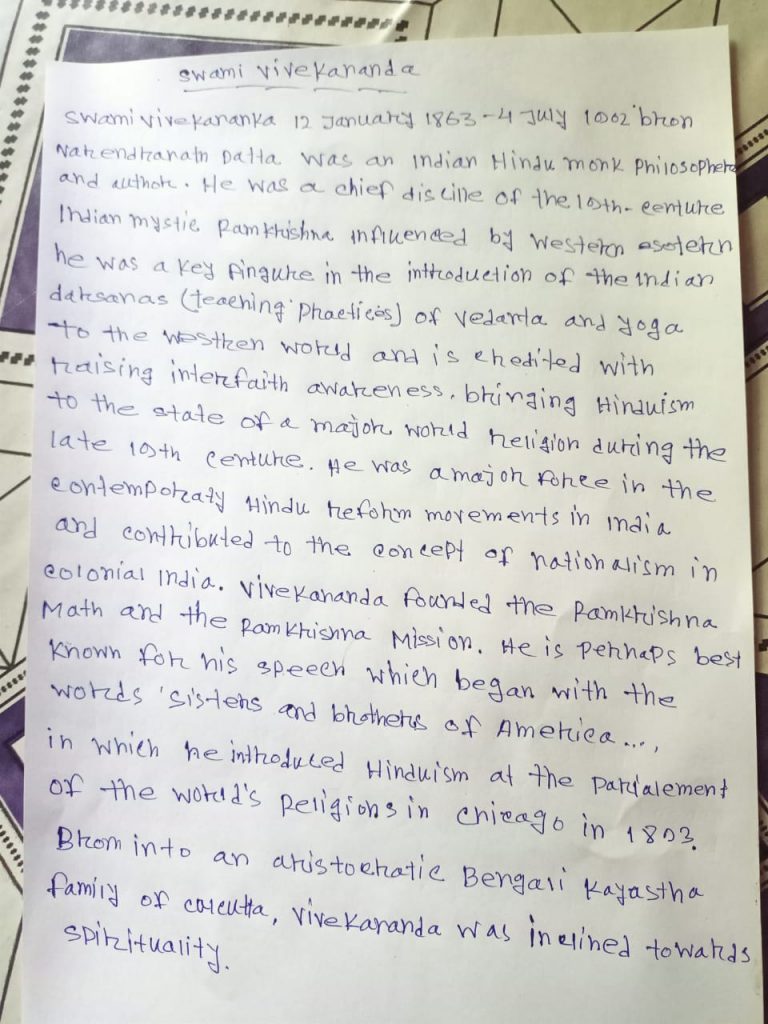 swami vivekananda
swami vivekananka 12 January 1863-4 July 1002 bron
Narendranath Datta was an Indian Hindu monk Philosopher
and author. He was a chief disciile of the 10th-centure
Indian mystic Ramkrishna influenced by western esotern
he was a key fingure in the introduction of the Indian
darsanas (teaching practices) of vedanta and yoga
to the westren world and is credited with
raising interfaith awareness, bringing Hinduism
to the state of a major world religion during the
late 10th centure. He was a major force in the
contemporaty Hindu reform movements in india
and contributed to the concept of nationalism in
colonial India. Vivekananda founded the Ramkrishna
Math and the Ramkrishna Mission. He is perhaps best
known for his speech which began with the
words 'sisters and brothers of America...,
in which he introduced Hinduism at the parialement
of the world's Religions in chicago in 1803.
Brom into an aristocratic Bengali Kayastha
family of calcutta, vivekananda was inclined towards
spirituality.